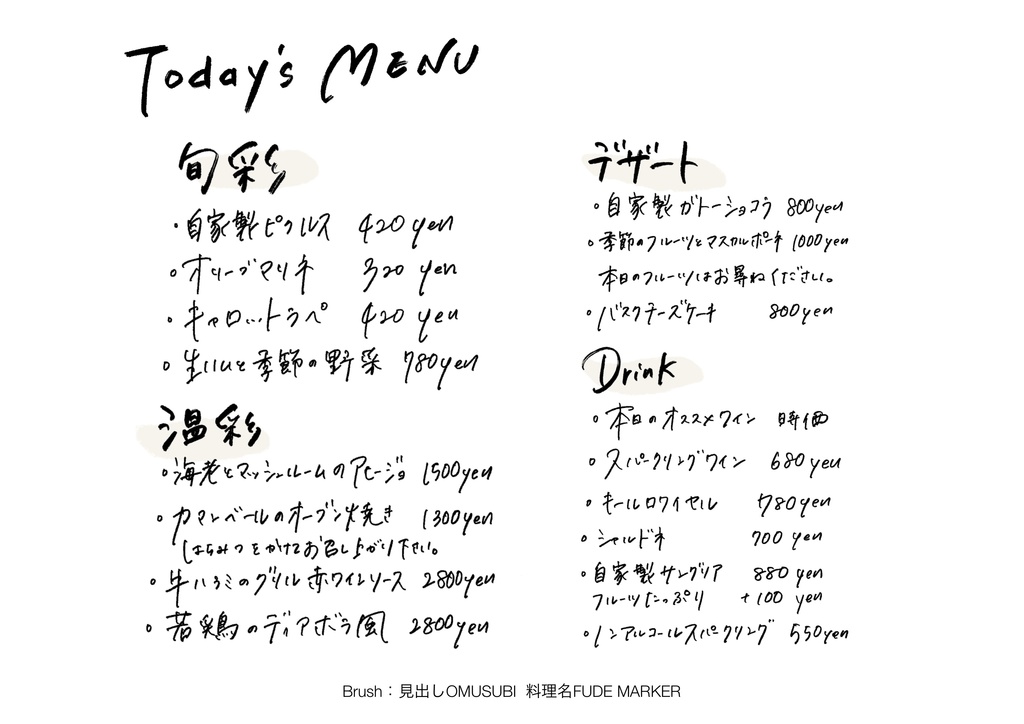 Today's MENU
旬彩
・自家製ピクルス 420yen
・オリーブマリネ 320 yen
・キャロットラペ 420 yen
・生ハムと季節の野菜 780yen
温彩
・海老とマッシュルームのアヒージョ 1500yen
・カマンベールのオーブン焼き 1300yen
はちみつをかけてお召し上がり下さい。
・牛ハラミのグリル 赤ワインソース 2800yen
・若鶏のディアボラ風 2800yen
デザート
・自家製ガトーショコラ 800yen
・季節のフルーツとマスカルポーネ 1000yen
本日のフルーツはお尋ねください。
・バスクチーズケーキ 800yen
Drink
・本日のオススメワイン 時価
・スパークリングワイン 680yen
・キールロワイヤル 780yen
・シャルドネ 700 yen
・自家製サングリア 880 yen
フルーツたっぷり +100 yen
・ノンアルコールスパークリング 550yen
Brush：見出しOMUSUBI 料理名FUDE MARKER